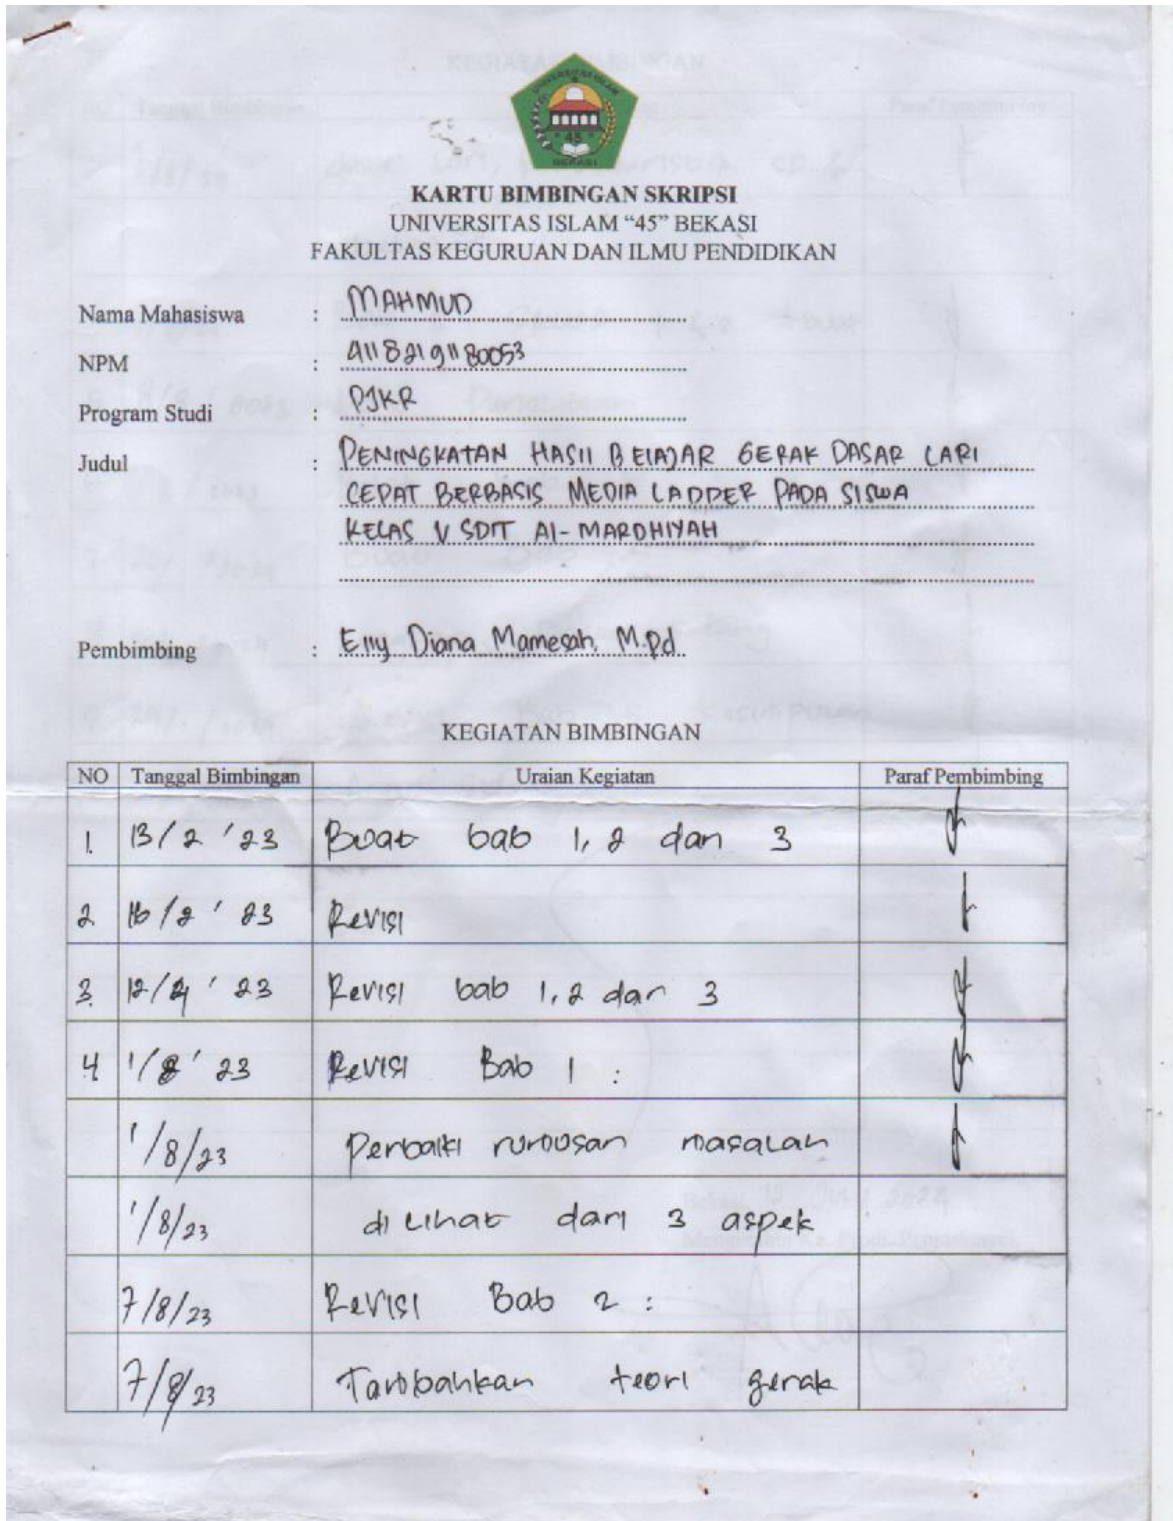 UNIVERSITAS ISLAM
"45"
BEKASI
KARTU BIMBINGAN SKRIPSI
UNIVERSITAS ISLAM “45” BEKASI
FAKULTAS KEGURUAN DAN ILMU PENDIDIKAN
Nama Mahasiswa : MAHMUD
NPM : 41182191180053
Program Studi : PJKR
Judul : PENINGKATAN HASIl BElAJAR GERAK DASAR LARI
CEPAT BERBASIS MEDIA LADDER PADA SISWA
KELAS V SDIT Al-MARDHIYAH
Pembimbing : Elly Diana Mamesah, M.Pd
KEGIATAN BIMBINGAN
NO Tanggal Bimbingan Uraian Kegiatan Paraf Pembimbing
1. 13/2 '23 Buat bab 1, 2 dan 3
2. 16/2 '23 Revisi
3. 12/4 '23 Revisi bab 1, 2 dan 3
4 1/8 '23 Revisi Bab 1 :
1/8/23 Perbaiki rumusan masalah
1/8/23 di lihat dari 3 aspek
7/8/23 Revisi Bab 2 :
7/8/23 Tambahkan teori gerak